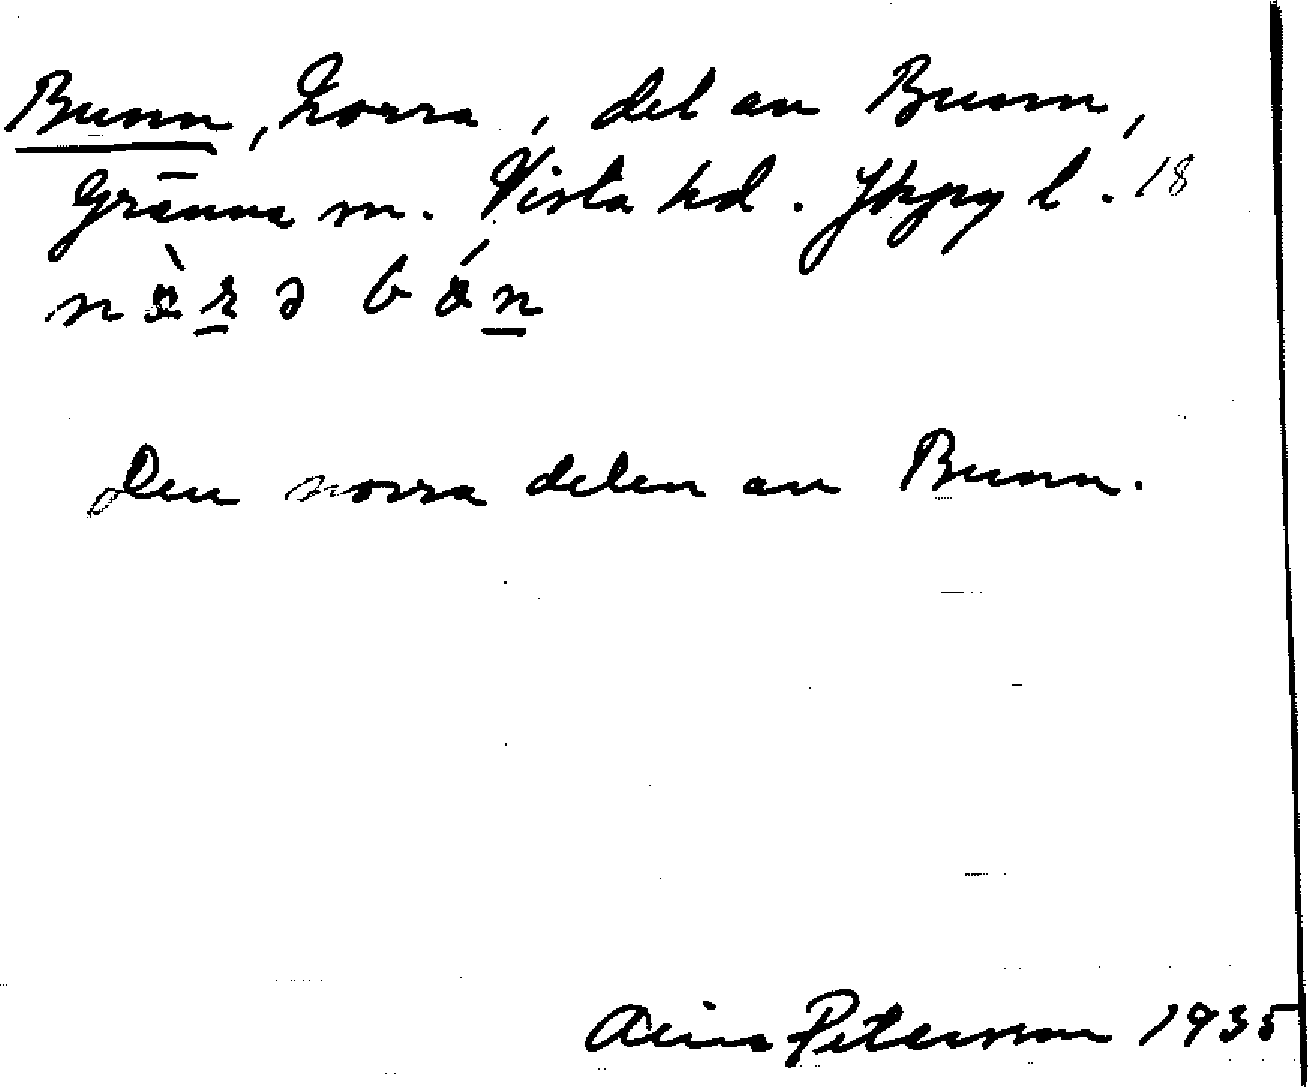 Bunn, Norra, del av Bunn,
Gränna sn. Vista hd. Jkpg l. 18
Den norra delen av Bunn.
Aina Petersson 1935